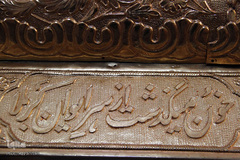 خون میگذشت از سر ایوان کربلا